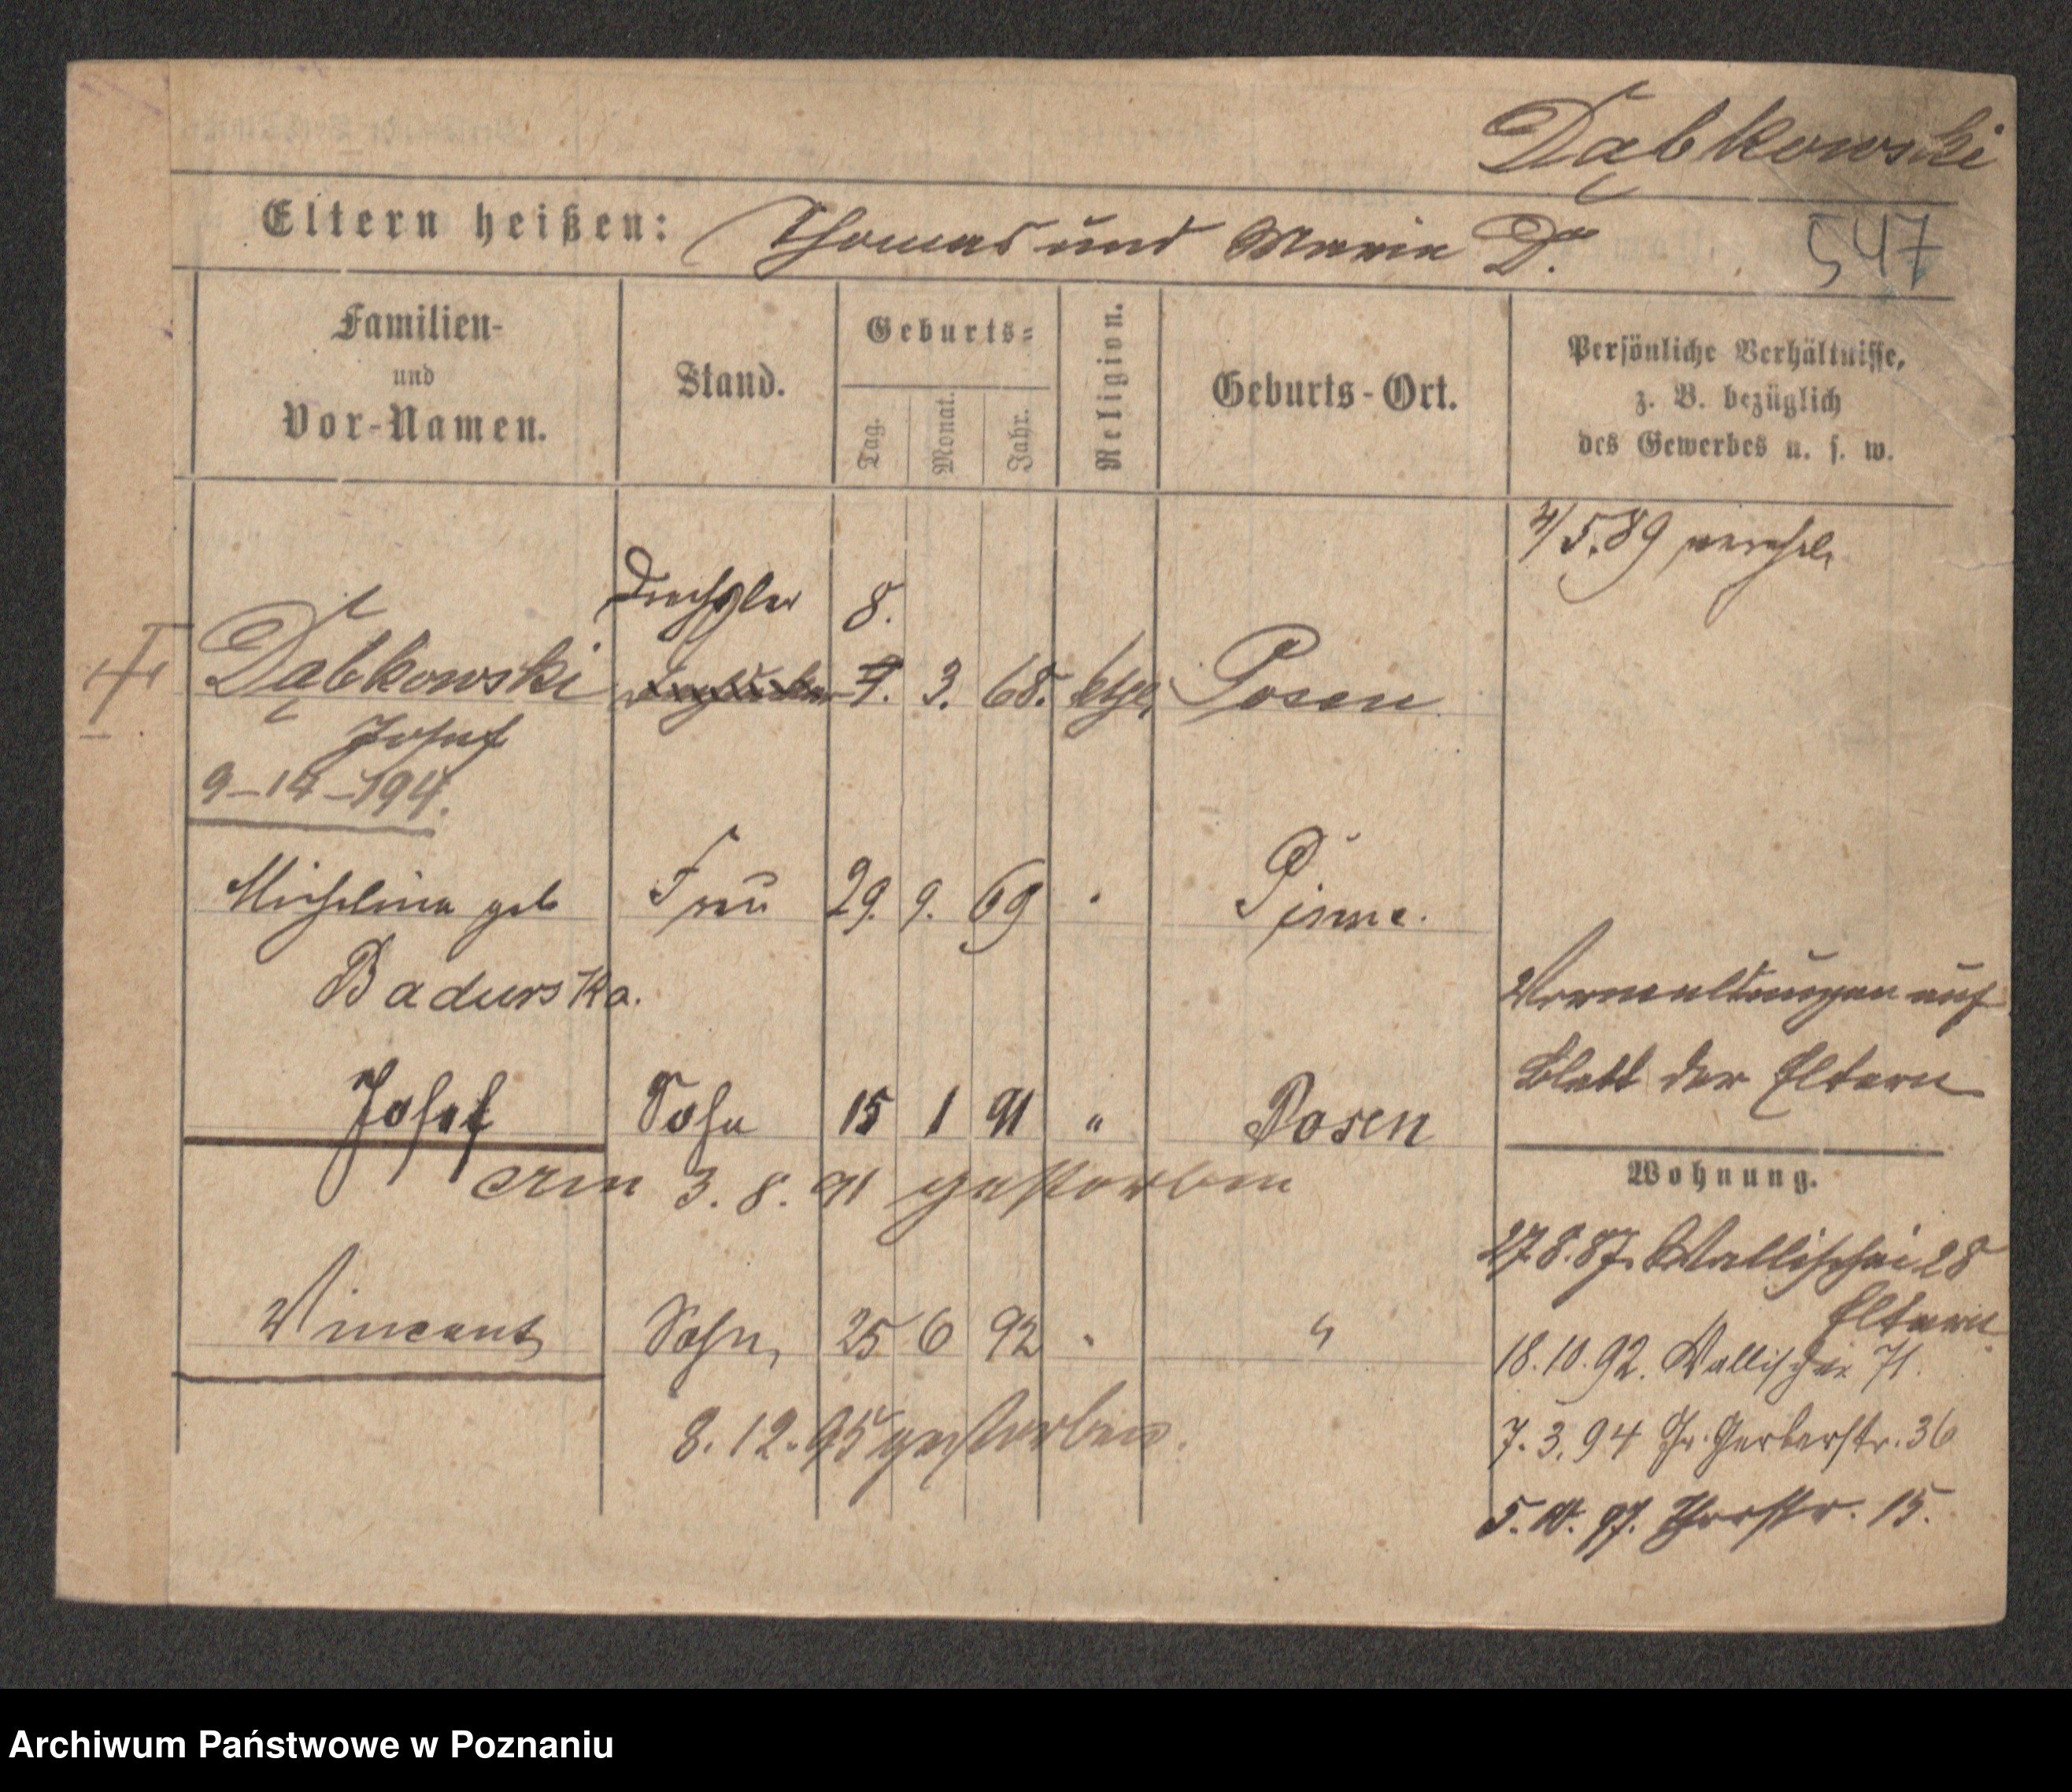 Dąbkowski
Eltern heißen: Thomas und Maria D.
547
Familien-
und
Vor-Namen.
Stand.
Geburts-
Tag.
Monat.
Jahr.
Religion.
Geburts-Ort.
Persönliche Verhältnisse,
z. B. bezüglich
des Gewerbes u. s. w.
4/5.89 verehel.
Drechsler 8.
Dąbkowski 7. 3. 68. kath. Posen
Josef
9-14-194.
Michelina geb Frau 29. 9. 69 " Pinne.
Badurska.
Vermerke auf
Blatt der Eltern
Josef Sohn 15 1 91 " Posen
Am 3. 8. 91 gestorben
Wohnung.
27.8.87. Wallischei 28
Eltern
Vincent Sohn, 25 6 92 " "
18.10.92. Wallischei 71.
8.12.95 gestorben.
7.3.94 Gr. Gerberstr. 36
5. 10. 97. Thorstr. 15.